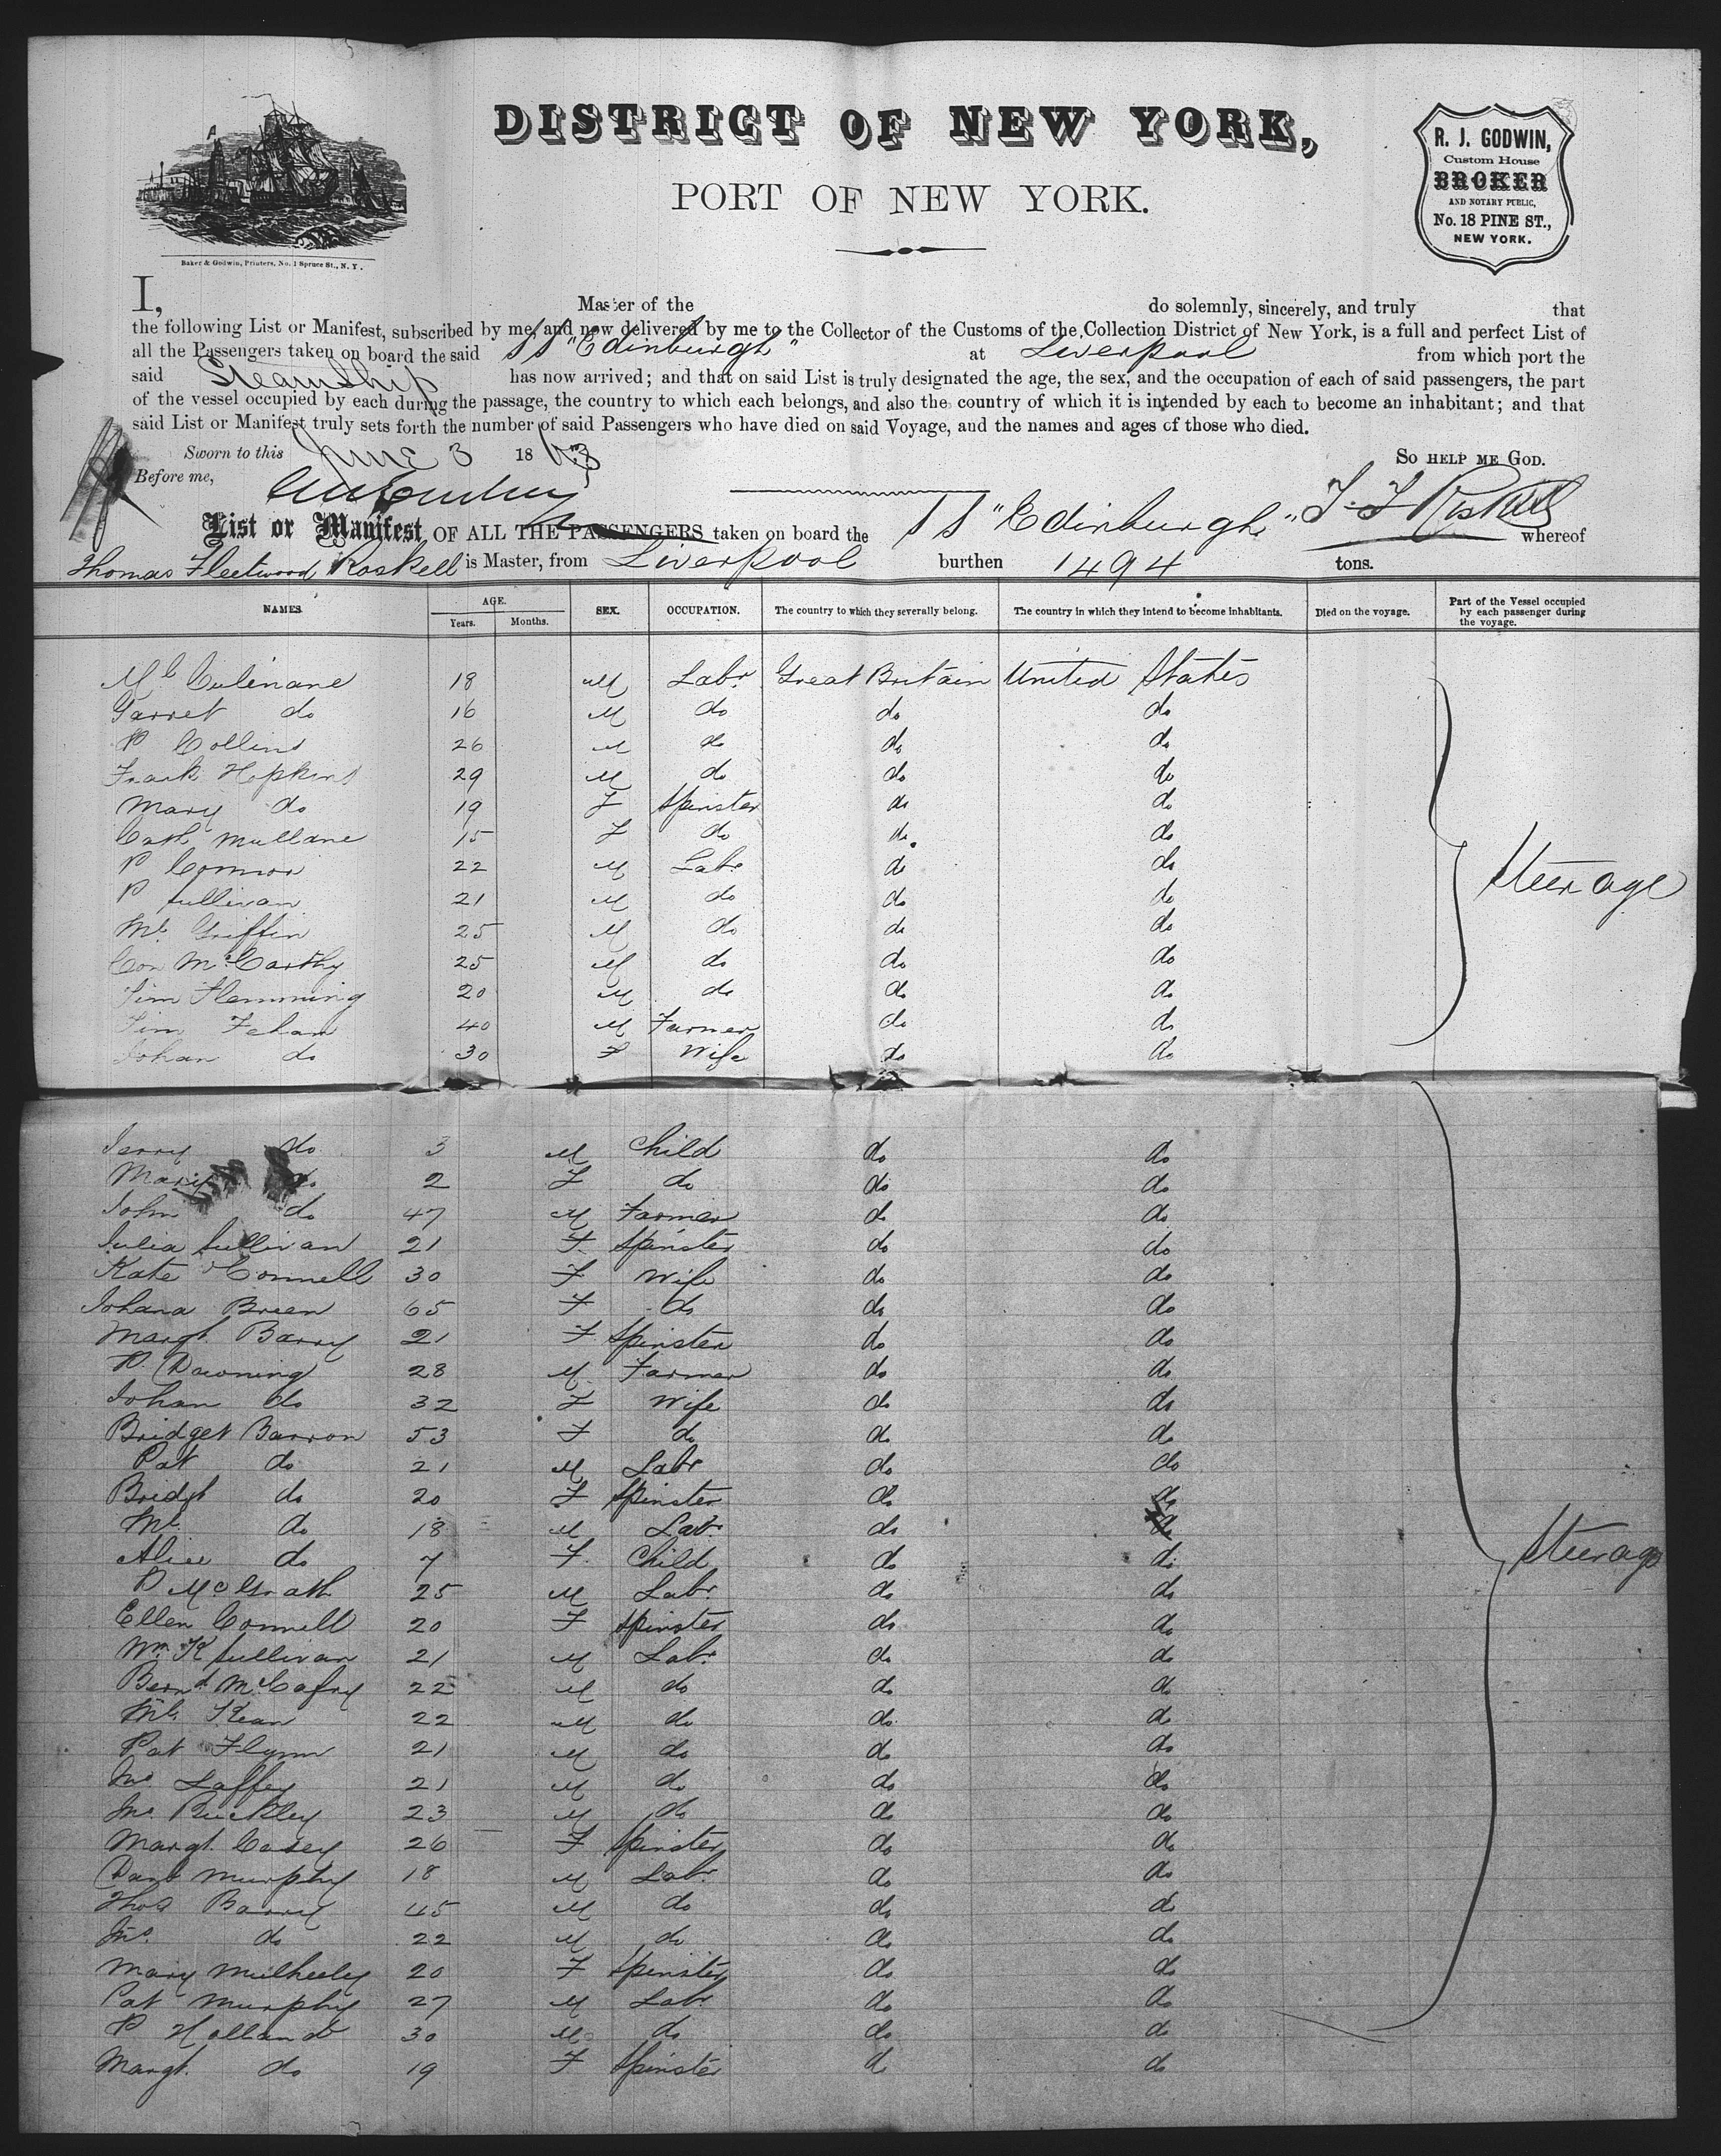 DISTRICT OF NEW YORK,
PORT OF NEW YORK.
R. J. GODWIN,
Custom House
BROKER
AND NOTARY PUBLIC,
No. 18 PINE ST.,
NEW YORK.
Baker & Godwin, Printers, No. 1 Spruce St., N. Y.
I, Master of the do solemnly, sincerely, and truly that
the following List or Manifest, subscribed by me, and now delivered by me to the Collector of the Customs of the Collection District of New York, is a full and perfect List of
all the Passengers taken on board the said SS "Edinburgh" at Liverpool from which port the
said Steamship has now arrived; and that on said List is truly designated the age, the sex, and the occupation of each of said passengers, the part
of the vessel occupied by each during the passage, the country to which each belongs, and also the country of which it is intended by each to become an inhabitant; and that
said List or Manifest truly sets forth the number of said Passengers who have died on said Voyage, and the names and ages of those who died.
Sworn to this June 3 1863 So help me God.
Before me,
T. F. Roskell
List or Manifest OF ALL THE PASSENGERS taken on board the SS "Edinburgh" whereof
Thomas Fleetwood Roskell is Master, from Liverpool burthen 1494 tons.
NAMES. AGE. Years. Months. SEX. OCCUPATION. The country to which they severally belong. The country in which they intend to become inhabitants. Died on the voyage. Part of the Vessel occupied by each passenger during the voyage.
Ml Culinane 18 M Labr Great Britain United States
Garret do 16 M do do do
P Collins 26 M do do do
Frank Hopkins 29 M do do do
Mary do 19 F Spinster do do
Cath Mullane 15 F do do do
P Connor 22 M Labr do do
Steerage
P Sullivan 21 M do do do
Ml Griffin 25 M do do do
Con McCarthy 25 M do do do
Tim Flemming 20 M do do do
Tim Fehan 40 M Farmer do do
Johan do 30 F Wife do do
Jerry do 3 M Child do do
Mary do 2 F do do do
John do 47 M Farmer do do
Julia Sullivan 21 F Spinster do do
Kate Connell 30 F Wife do do
Johana Breen 65 F do do do
Margt. Barry 21 F Spinster do do
P. Downing 28 M Farmer do do
Johan do 32 F Wife do do
Bridget Barron 53 F do do do
Pat do 21 M Labr do do
Bridgt do 20 F Spinster do do
Ml do 18 M Labr do do
Alice do 7 F Child do do
Steerage
P McGrath 25 M Labr do do
Ellen Connell 20 F Spinster do do
Wm K Sullivan 21 M Labr do do
Bernd McCafry 22 M do do do
Ml Kean 22 M do do do
Pat Flynn 21 M do do do
Jno Laffey 21 M do do do
Jno Buckley 23 M do do do
Margt. Casey 26 F Spinster do do
Danl Murphy 18 M Labr do do
Thos Barry 45 M do do do
Jno. do 22 M do do do
Mary Mulheeley 20 F Spinster do do
Pat Murphy 27 M Labr do do
P Holland 30 M do do do
Margt. do 19 F Spinster do do